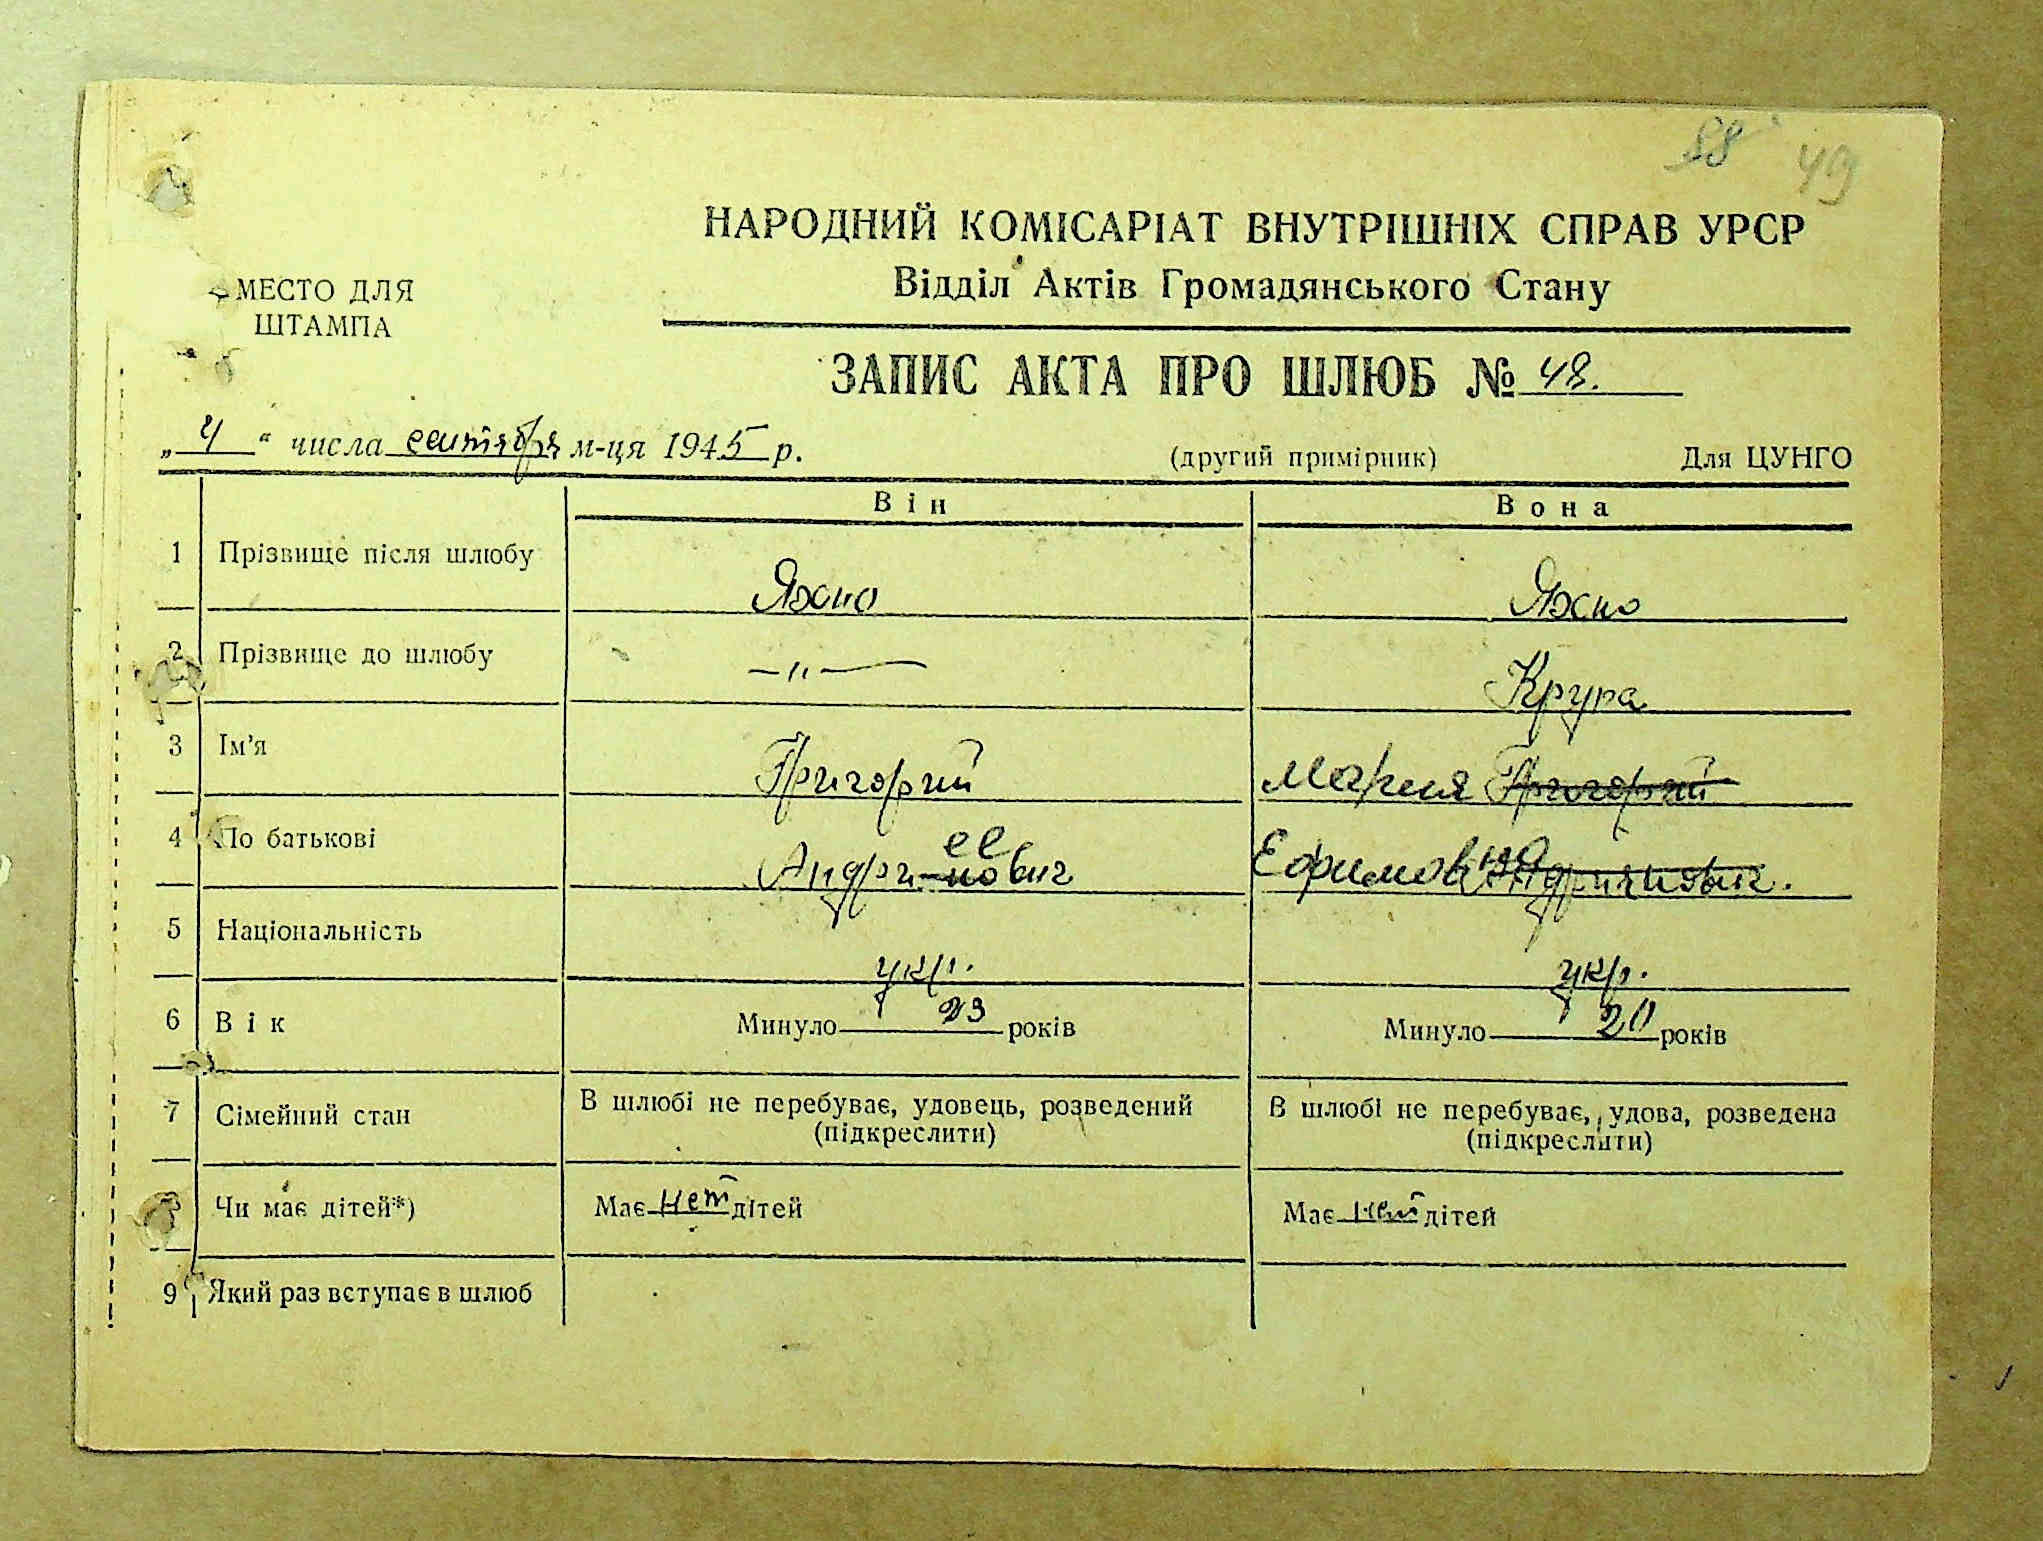 88 49
НАРОДНИЙ КОМІСАРІАТ ВНУТРІШНІХ СПРАВ УРСР
Відділ Актів Громадянського Стану
МЕСТО ДЛЯ
ШТАМПА
ЗАПИС АКТА ПРО ШЛЮБ № 48.
„ 4 “ числа сентября м-ця 1945 р. (другий примірник) Для ЦУНГО
Він Вона
1 Прізвище після шлюбу Яхно Яхно
2 Прізвище до шлюбу —„— Крура
3 Ім'я Григорий Мария Григорий
4 По батькові Андреевич Ефимовна Андриянович.
5 Національність укр. укр.
6 Вік Минуло 23 років Минуло 20 років
7 Сімейний стан В шлюбі не перебуває, удовець, розведений В шлюбі не перебуває, удова, розведена
(підкреслити) (підкреслити)
8 Чи має дітей*) Має нет дітей Має нет дітей
9 Який раз вступає в шлюб